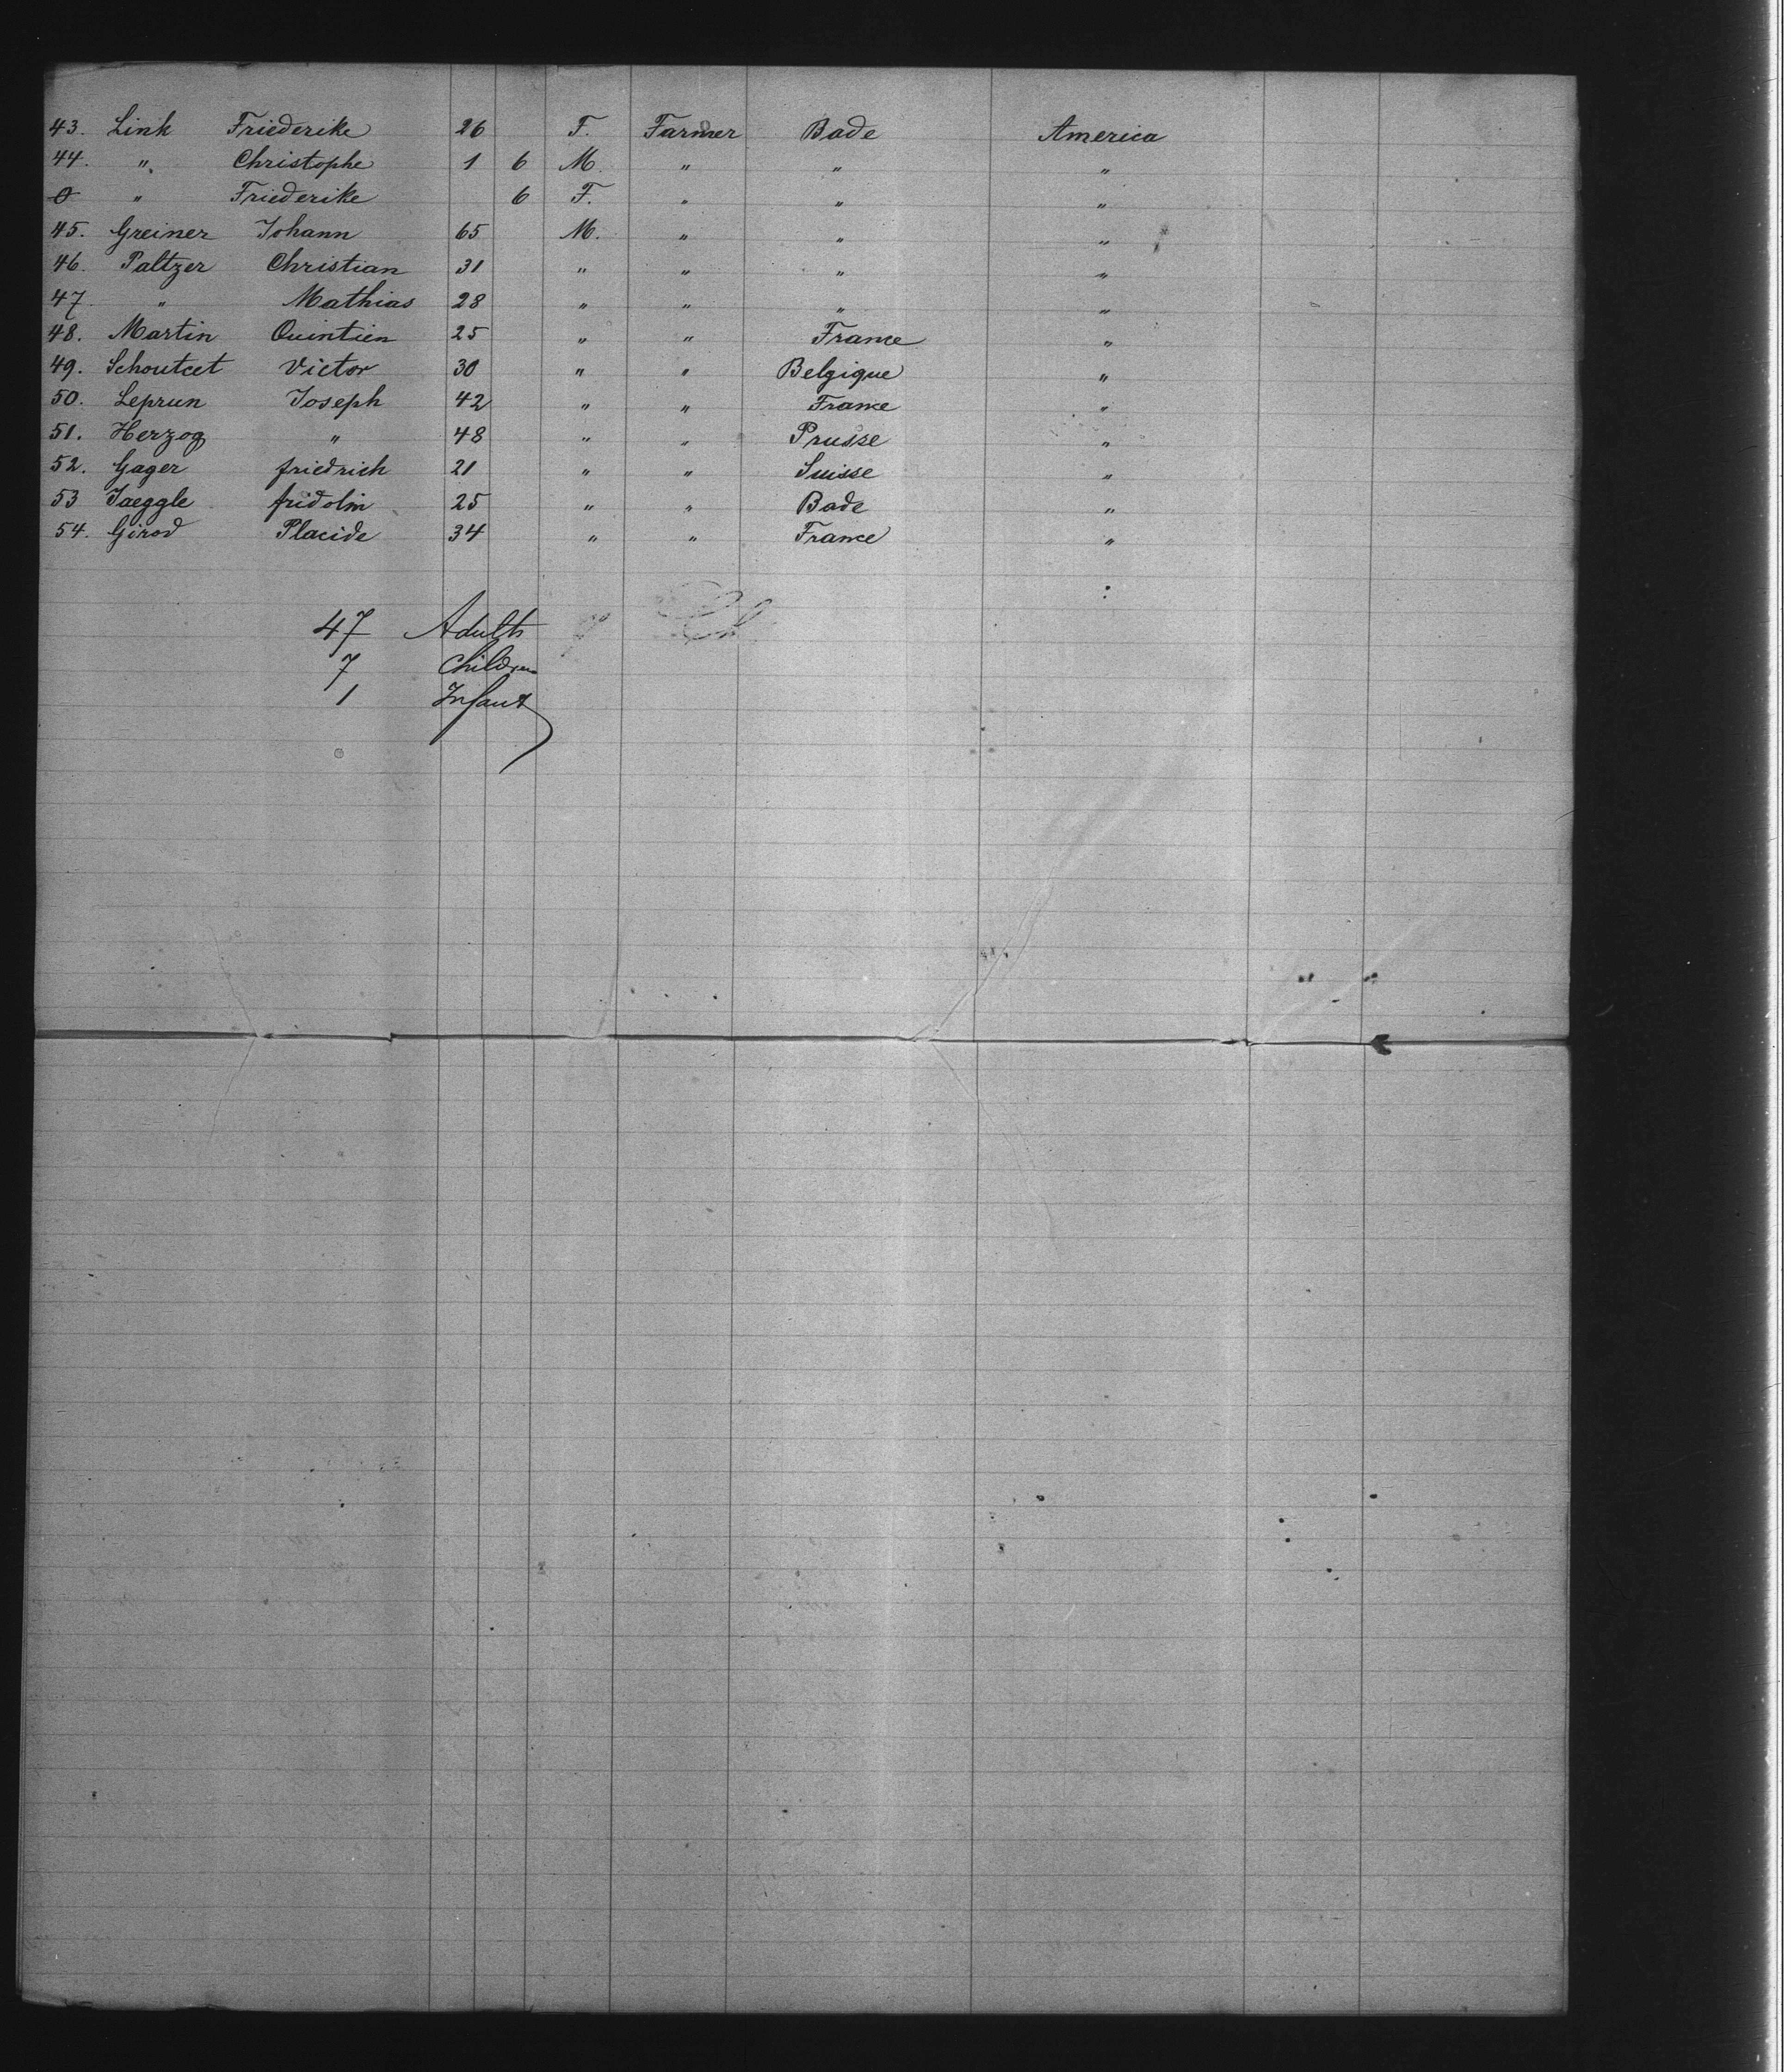 43. Link Friederike 26 F. Farmer Bade America
44. " Christophe 1 6 M. " " "
0 " Friederike 6 F. " " "
45. Greiner Johann 65 M. " " "
46. Paltzer Christian 31 " " " "
47 " Mathias 28 " " " "
48. Martin Quintien 25 " " France "
49. Schoutcet Victor 30 " " Belgique "
50. Leprun Joseph 42 " " France "
51. Herzog " 48 " " Prusse "
52. Gager friedrich 21 " " Suisse "
53 Jaeggle fridolin 25 " " Bade "
54. Girod Placide 34 " " France "
47 Adults
7 Children
1 Infant